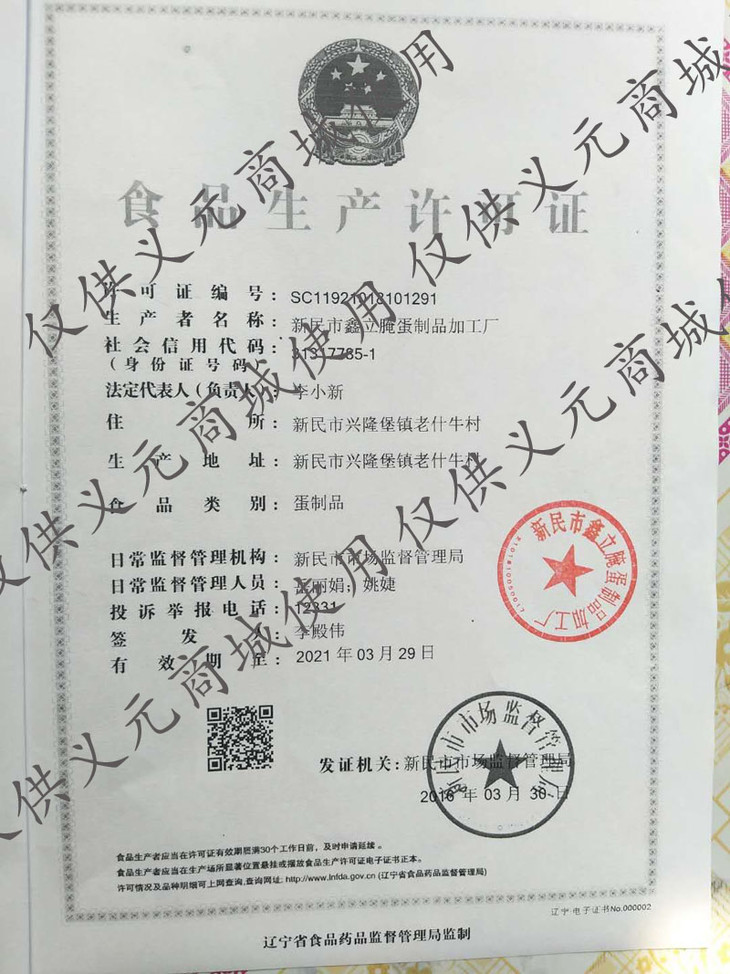 食品生产许可证
许可证编号：SC11921018101291
生产者名称：新民市鑫立腌蛋制品加工厂
社会信用代码：31317785-1
（身份证号码）
法定代表人（负责人）：李小新
住所：新民市兴隆堡镇老什牛村
生产地址：新民市兴隆堡镇老什牛村
食品类别：蛋制品
日常监督管理机构：新民市市场监督管理局
日常监督管理人员：丽娟；姚婕
投诉举报电话：12331
签发人：李殿伟
有效期至：2021年03月29日
新民市鑫立腌蛋制品加工厂
发证机关：新民市市场监督管理局
新民市市场监督管理局
2016年03月30日
食品生产者应当在许可证有效期届满30个工作日前，及时申请延续。
食品生产者应当在生产场所显著位置悬挂或摆放食品生产许可证电子证书正本。
许可情况及品种明细可上网查询，查询网址：http://www.lnfda.gov.cn (辽宁省食品药品监督管理局)
辽宁 电子证书No.000002
辽宁省食品药品监督管理局监制
仅供义元商城使用
仅供义元商城使用
仅供义元商城使用
仅供义元商城
仅供义元商城